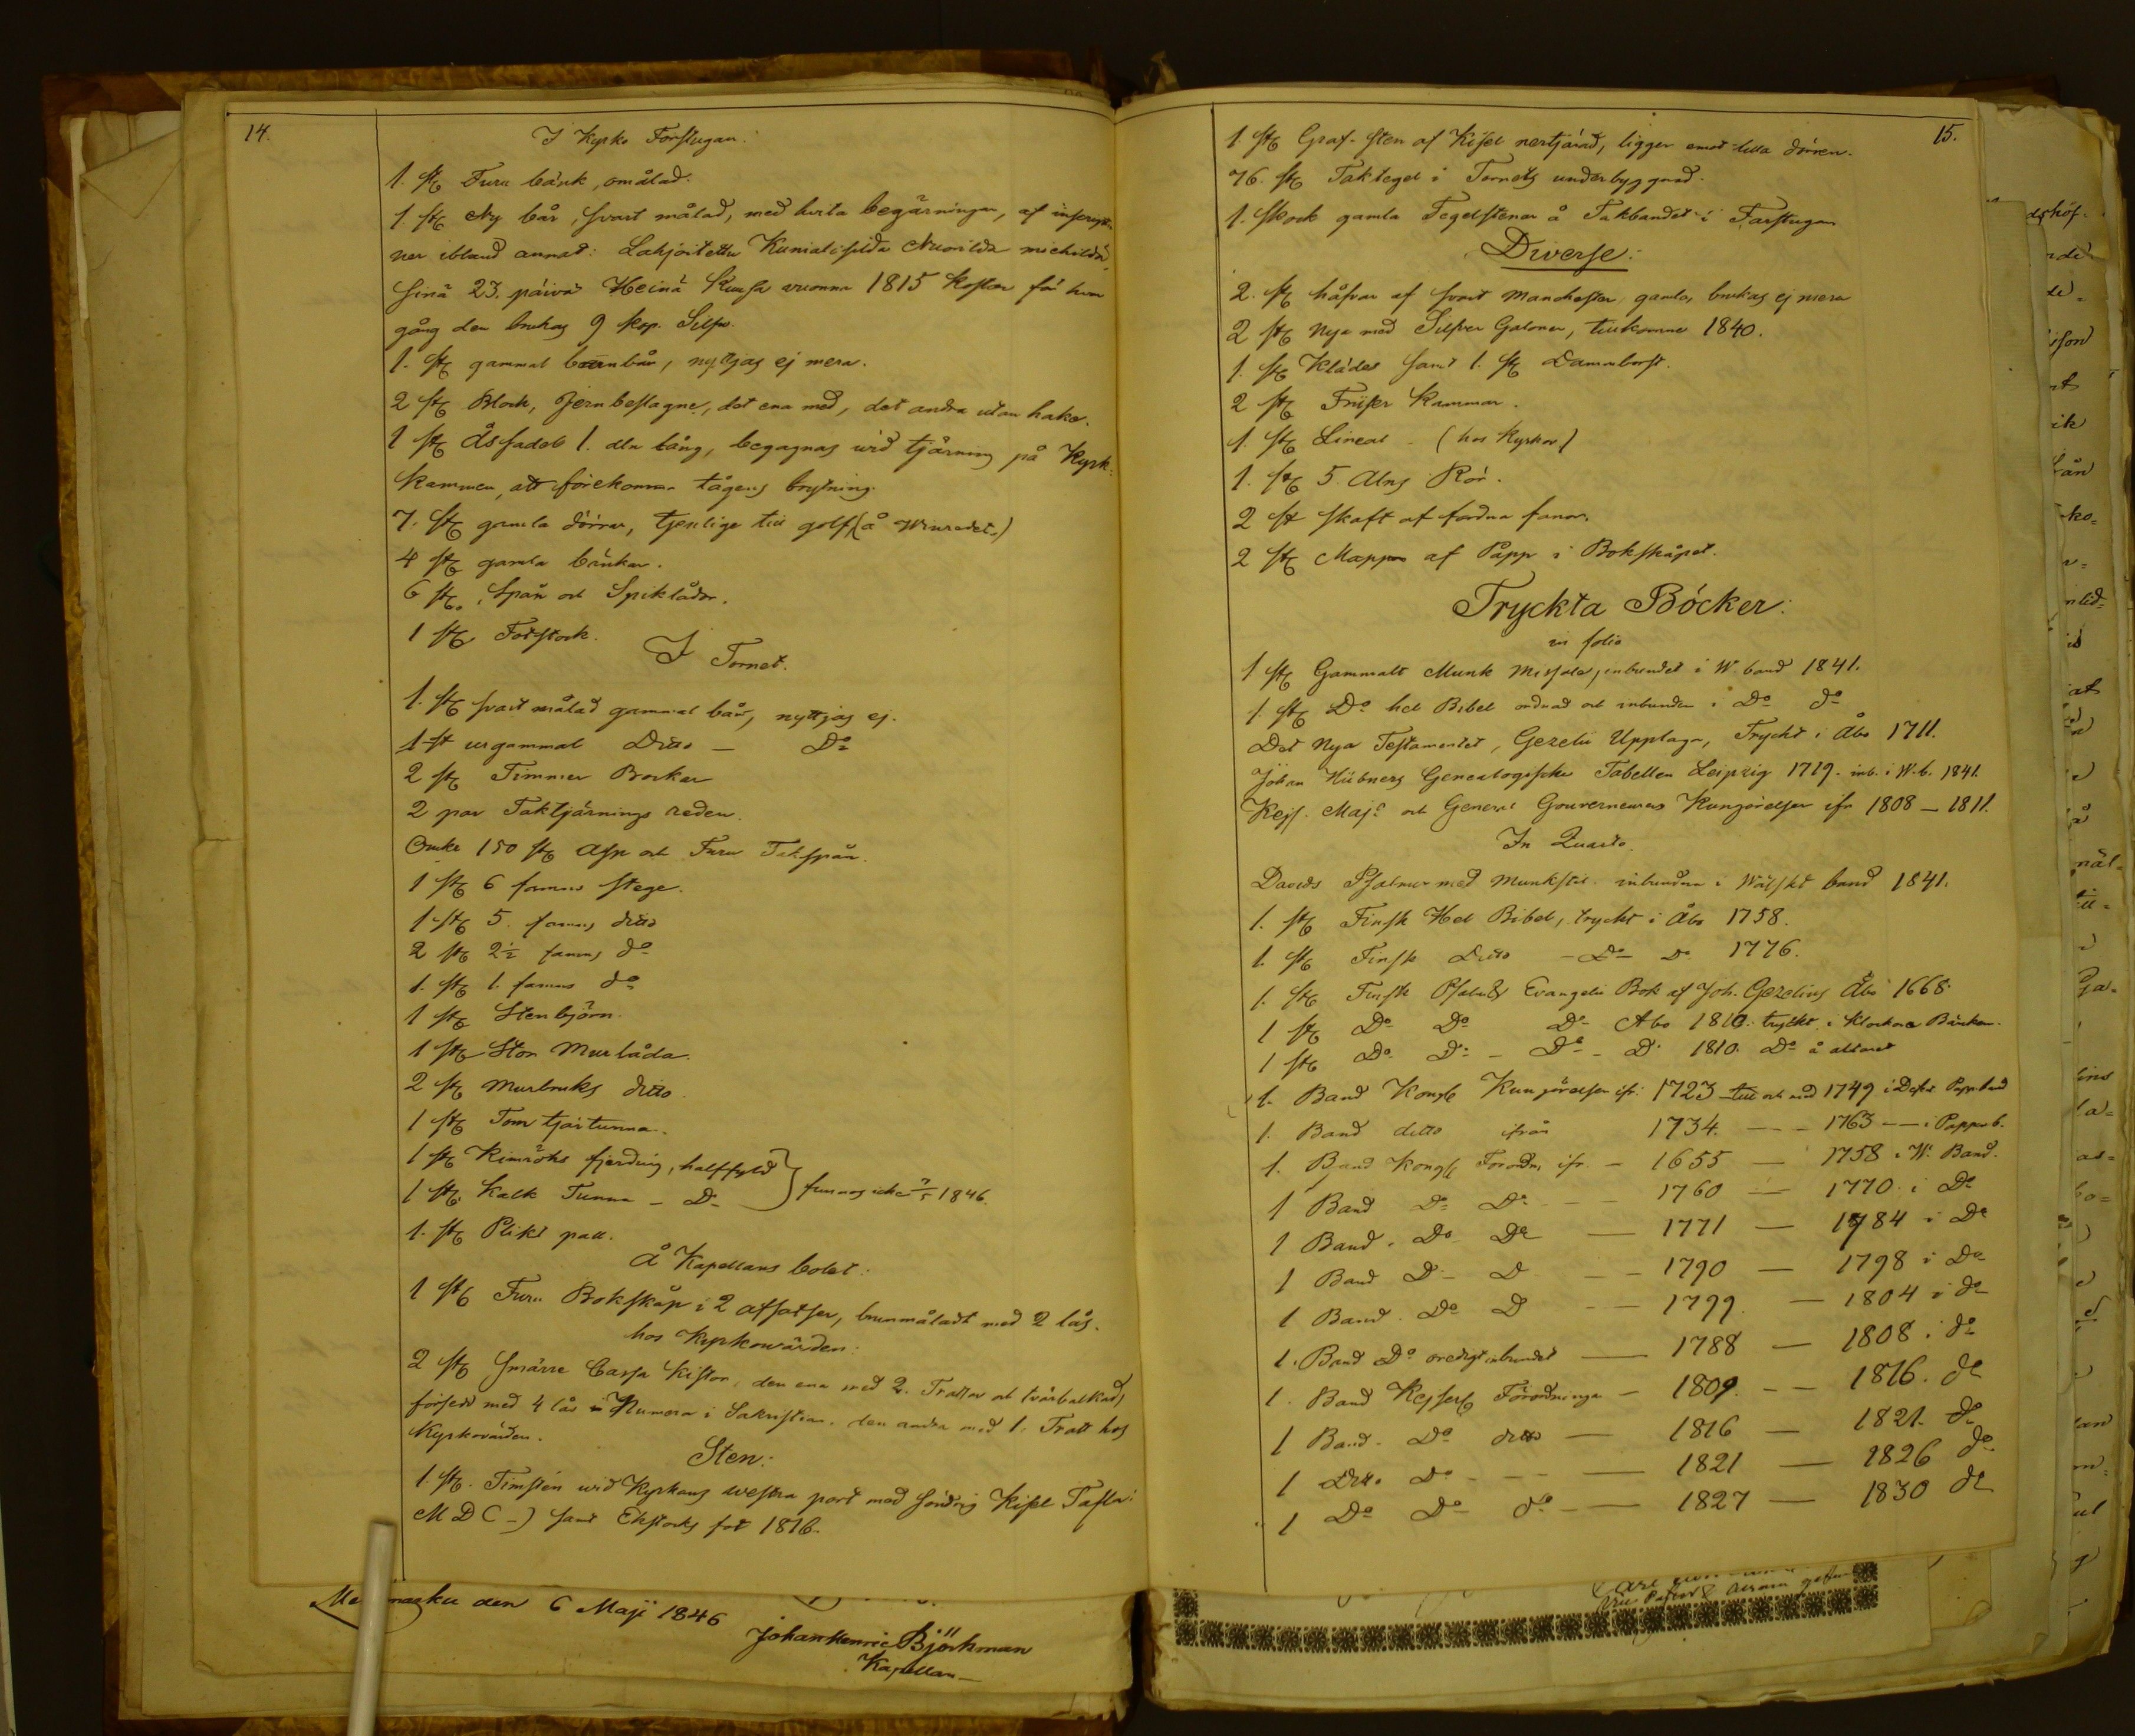 14.
I Kyrko Förstugan:
1. st. Furu bänk, omålad.
1 st. Ny bår, svart målad, med hvita begärningar, af inscriptio
ner ibland annat: Lahjoitettu Kunialisilda Nuorilda miehildä
sinä 23. päivä Heinä Kuusa vuonna 1815 kostar för hvar
gång den brukas 9 kop. Silfv.
1. st. gammal barnbår, nyttjas ej mera.
2 st. Block, Jernbeslagne, det ena med, det andra utan hake.
1 st. Åssadel 1. aln lång, begagnas wid tjärning på Kyrk-
kammen, att förekomma tågens brytning.
7. st. gamla dörrar, tjenlige till golf (å Winradet.)
4 st. gamla bänkar.
6 st. Spån och Spiklådor.
1 st. Fotstock.
I Tornet.
1. st. svart målad gammal bår, nyttjas ej.
1 st urgammal Ditto — Do
2 st. Timmer Bockar
2 par Taktjärnings reden.
Omkr 150 st. Asp och Furu Takspån.
1 st. 6 famns stege.
1 st. 5. famns ditto
2 st. 2½ famns do
1. st. 1. famns do
1 st. Stenbjörn.
1 st. Stor Murlåda.
2 st. Murbruks ditto.
1 st. Tom tjärtunna.
1 st. Kimröks fjerding, halffyld } funnos icke 7/5 1846.
1 st. Kalk Tunna — Do
1. st. Plikt pall.
Å Kapellans bolet:
1 st. Furu Bokskåp i 2 afsatser, brunmåladt med 2 lås.
hos Kyrkowärden:
2 st. smärre Cassa Kistor, den ena med 2. Trattar och tvärbalkad,
försedd med 4 lås Numera i Sakristian. den andra med 1. Tratt hos
Kyrkovärden.
Sten:
1. st. Timsten wid Kyrkans westra port med söndrig Kisel Tafla:
M D C -) samt Ekstocks fot 1816.
Me naku den 6 Maji 1846
Johan Henric Björkman
Kapellan
15.
1 st. Graf-sten af Kisel nertjärad, ligger emot lilla dörren.
76. st. Taktegel i Tornets underbyggnad.
1. Skock gamla Tegelstenar å Takbandet i Farstugan
Diverse:
2. st. håfvar af svart Manchester, gamla, brukas ej mera
2 st. nya med Silfver Galoner, tillkomne 1840.
1. st. Klädes samt 1. st. Dammborst.
2 st. Friser Kammar.
1 st. Lineal - (hos Kyrkov)
1. st. 5. Alns Rör.
2 st skaft af fordna fanor.
2 st. Mappor af Papp i Bokskåpet.
Tryckta Böcker:
in folio
1 st. Gammalt Munk Missale, inbundet i W. band 1841.
1. st. Do hel Bibel ordnad och inbunden i Do do
Det Nya Testamentet, Gezelii Upplaga, Tryckt i Åbo 1711.
Johan Hübners Genealogiske Tabellen Leipzig 1719. inb. i W.b. 1841.
Kejs. Maj:s och General Gouverneurens Kungörelser ifr 1808 — 1811.
In Quarto.
Davids Psalmer med Munkstil. inbundna i Wälskt band 1841.
1. st. Finsk Hel Bibel, tryckt i Åbo 1758.
1. st. Finsk Ditto — Do — Do 1776.
1. st. Finsk Psalm & Evangelii Bok af Joh. Gezelius Åbo 1668.
1 st. Do Do Do Åbo 1810. tryckt i Klockare Bänken.
1 st. Do Do — Do — D. 1810. Do å altaret
1. Band Kongl. Kungörelser ifr. 1723 till och med 1749 i Papp. band
1. Band ditto ifrån 1734. — — 1763 — — i Pappb.
1. Band Kongl. Förordn. ifr. — 1655 — 1758 i W. Band.
1 Band Do Do — — 1760 — 1770 i Do
1 Band. Do Do — 1771 — 1784 i Do
1 Band D — D — — 1790 — 1798 i Do
1 Band. Do D — — 1799. — 1804 i do
1. Band Do oredigt inbundet — 1788 — 1808 i do
1. Band Kejserl. Förordningar — 1809. — — 1816. do
1 Band. Do ditto — 1816 — 1821. do
1 Ditto Do - - - — 1821 — 1826 do
1 Do Do do — — 1827 — 1830 do